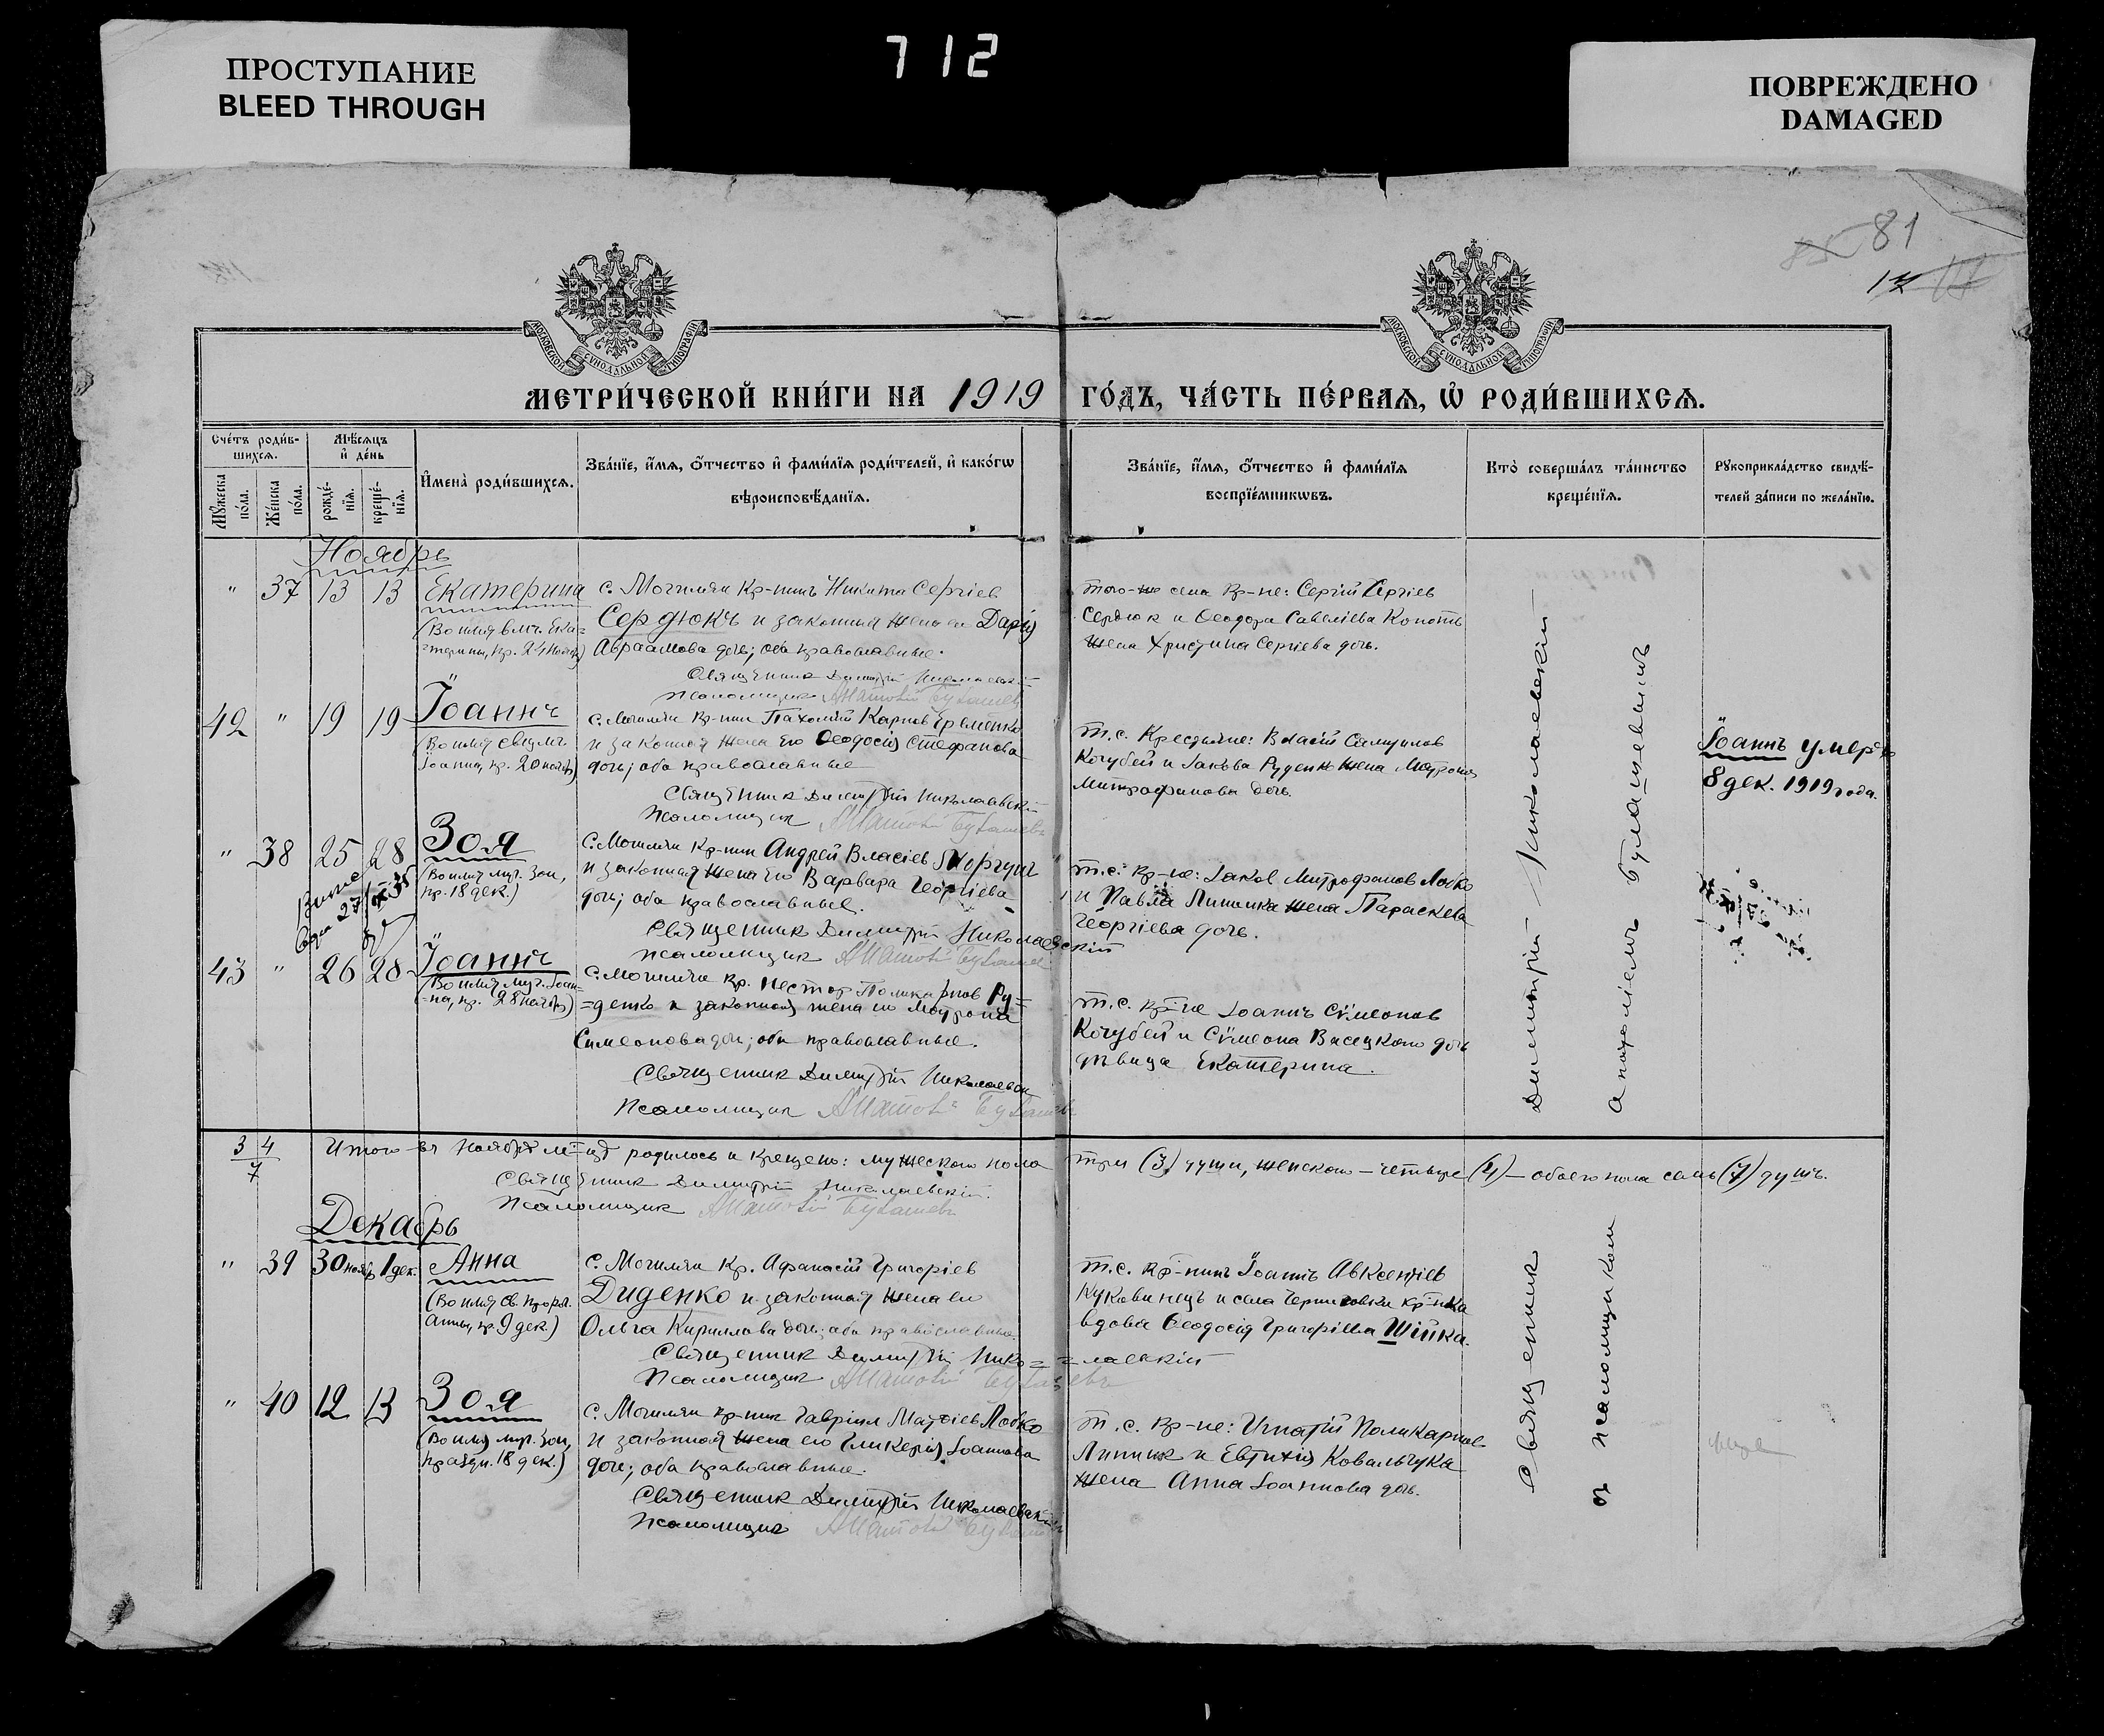 ПРОСТУПАНИЕ
BLEED THROUGH
712
ПОВРЕЖДЕНО
DAMAGED
81
МОСКОВСКОЙ СѴНОДАЛЬНОЙ ТИПОГРАФІИ
МОСКОВСКОЙ СѴНОДАЛЬНОЙ ТИПОГРАФІИ
МЕТРИ́ЧЕСКОЙ КНИ́ГИ НА 1919 ГО́ДЪ, ЧА́СТЬ ПЕ́РВАѦ, Ѡ РОДИ́ВШИХСѦ.
Сче́тъ роди́в-
шихсѧ.
Мꙋ́жеска
по́ла.
Же́нска
по́ла.
Мѣ́сѧцъ
и҆ де́нь
рожде́-
нїѧ.
креще́-
нїѧ.
И҆мена̀ роди́вшихсѧ.
Зва́нїе, и҆́мѧ, о҆́тчество и҆ фами́лїѧ роди́телей, и҆ како́гѡ
вѣроисповѣ́данїѧ.
Зва́нїе, и҆́мѧ, о҆́тчество и҆ фами́лїѧ
воспрїе́мникѡвъ.
Кто̀ соверша́лъ та́инство
креще́нїѧ.
Рꙋкоприкла́дство свидѣ́-
телей за́писи по жела́нїю.
Ноябрь
" 37 13 13 Екатерина
(Во имя влмч. Ека=
=терины, пр. 24 ноябр)
с. Могиляи Кр-нинъ Никита Сергіев
Сердюкъ и законная жена ен Дарія
Авраамова дочь; оба православные.
Священник Димитрій Николаевскій
Псаломщик
того-же села Кр-не: Сергій Сергіев
Сердюк и Ѳеодора Савеліева Конотъ
жена Христина Сергіева дочь.
42 " 19 19 Іоаннъ
Іоанна, пр. 20 ноябр)
с. Могиляи Кр-нин Пахомій Карпов Еременко
и законная жена его Ѳеодосія Стефанова
дочь; оба православные
Священник Димитрій Николаевскій
Псаломщик
т. с. Крестьяне: Власій Самуилов
Кочубей и Іакова Руденк жена Мотрона
Митрофанова дочь.
Іоаннъ умеръ
8 дек. 1919 года.
" 38 25 28 Зоя
(Во имя муч. Зои,
пр. 18 дек.)
с. Могиляи Кр-нин Андрей Власіев Моргун
и законная жена его Варвара Георгіева
дочь; оба православные.
Священник Димитрій Николаевскій
псаломщик
т. с. Кр-не: Іаков Митрофанов Лобко
и Павла Линника жена Параскева
Георгіева дочь.
43 " 26 28 Іоаннъ
(Во имя муч. Іоан=
=на, пр. 28 ноябр)
с. Могиляи Кр. Нестор Поликарпов Ру=
=денко и законная жена его Мотрона
Симеонова дочь; оба православные.
Священник Димитрій Николаевскій
Псаломщик
т. с. кр-не Іоаннъ Сѵмеонов
Кочубей и Сѵмеона Васецкого дочь
дѣвица Екатерина.
3 4
7
Итого въ ноябрѣ м-цѣ родилось и крещено: мужеского пола три (3) души, женского – четыре (4) – обоего пола семь (7) душъ.
Священник Димитрій Николаевскій.
Псаломщик
Декабрь
" 39 30 ноябр 1 дек. Анна
(Во имя св. прор.
Анны, пр. 9 дек.)
с. Могиляи Кр. Афанасій Григоріев
Диденко и законная жена его
Ольга Кириллова дочь; оба православные.
Священник Димитрій Нико= =лаевскій
Псаломщик
т. с. кр-нинъ Іоаннъ Авксентіев
Куковинецъ и села Черниговки кр-нка
вдова Ѳеодосія Григоріева Шійка.
" 40 12 13 Зоя
(Во имя муч. Зои,
праздн. 18 дек.)
с. Могиляи кр-нин Гавріил Матѳіев Лобко
и законная жена его Гликерія Іоаннова
дочь; оба православные.
Священник Димитрій Николаевскій
Псаломщик
т. с. Кр-не: Игнатій Поликарпов
Линник и Евтихія Ковальчука
жена Анна Іоаннова дочь.
Священник Димитрій Николаевскій
с псаломщиком Анатоліемъ Булашевымъ